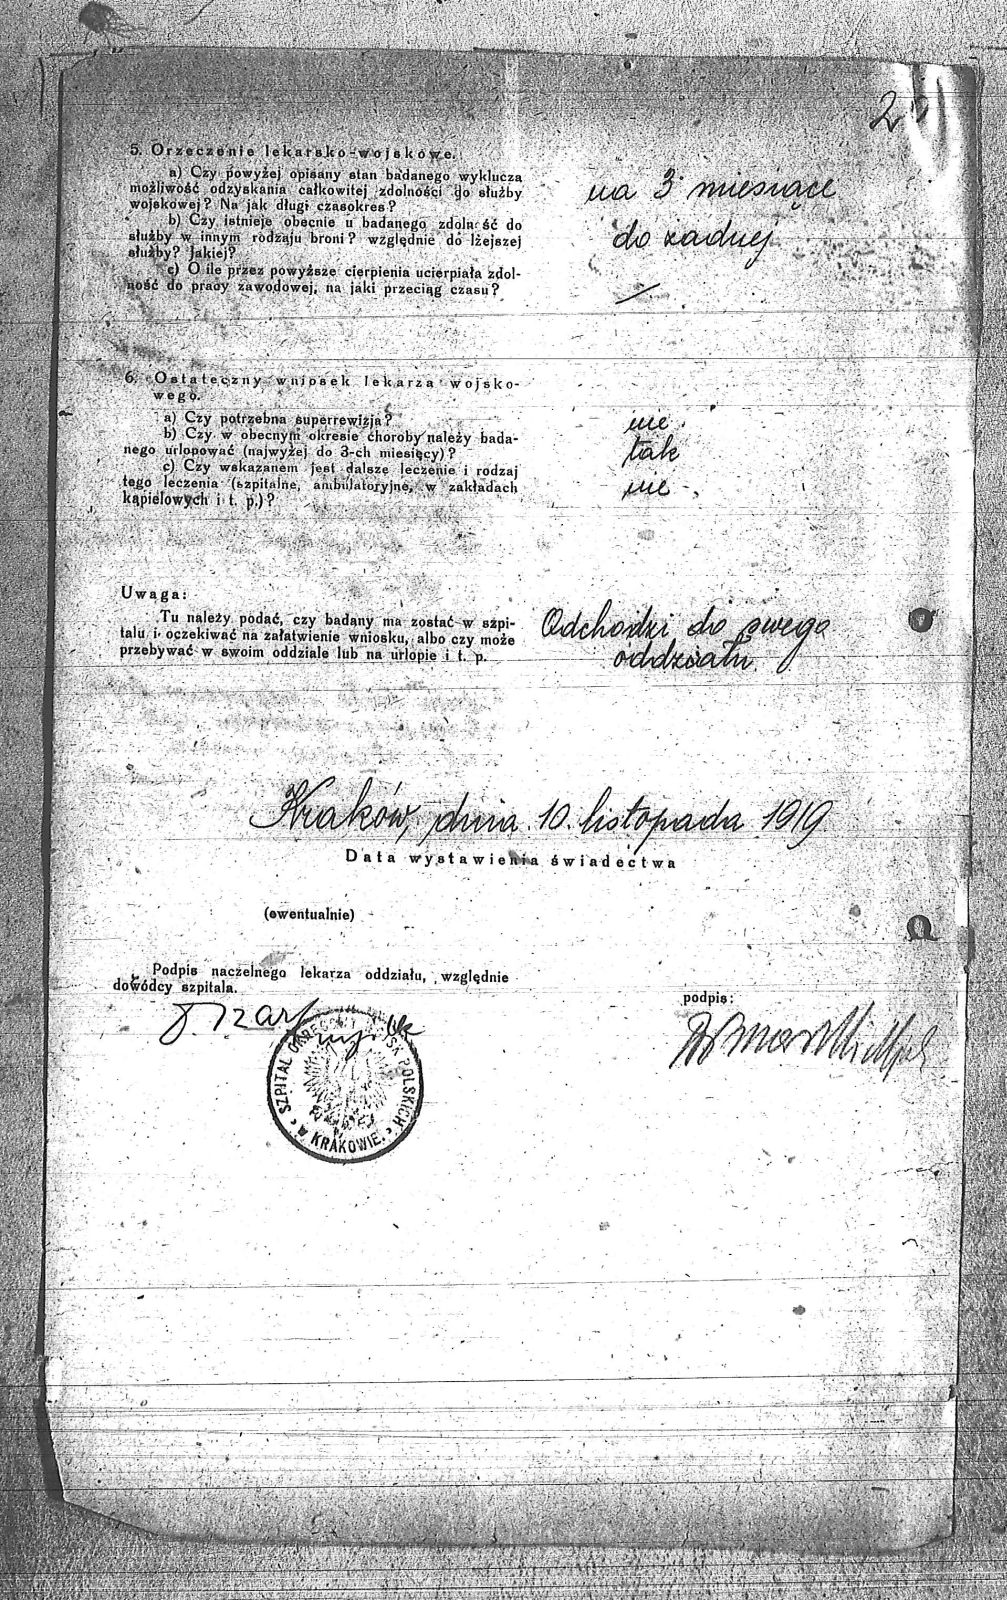 2
5. Orzeczenie lekarsko-wojskowe.
a) Czy powyżej opisany stan badanego wyklucza
możliwość odzyskania całkowitej zdolności do służby
wojskowej? Na jak długi czasokres?
na 3 miesiące
b) Czy istnieje obecnie u badanego zdolność do
służby w innym rodzaju broni? względnie do lżejszej
służby? Jakiej?
do żadnej
c) O ile przez powyższe cierpienia ucierpiała zdol-
ność do pracy zawodowej, na jaki przeciąg czasu?
6. Ostateczny wniosek lekarza wojsko-
wego.
a) Czy potrzebna superrewizja?
nie
b) Czy w obecnym okresie choroby należy bada-
nego urlopować (najwyżej do 3-ch miesięcy)?
tak
c) Czy wskazanem jest dalsze leczenie i rodzaj
tego leczenia (szpitalne, ambulatoryjne, w zakładach
kąpielowych i t. p.)?
nie
Uwaga:
Tu należy podać, czy badany ma zostać w szpi-
talu i oczekiwać na załatwienie wniosku, albo czy może
przebywać w swoim oddziale lub na urlopie i t. p.
Odchodzi do swego
oddziału
Kraków, dnia 10. listopada 1919
Data wystawienia świadectwa
(ewentualnie)
Podpis naczelnego lekarza oddziału, względnie
dowódcy szpitala.
podpis:
SZPITAL OKRĘGOWY WOJSK POLSKICH
w KRAKOWIE